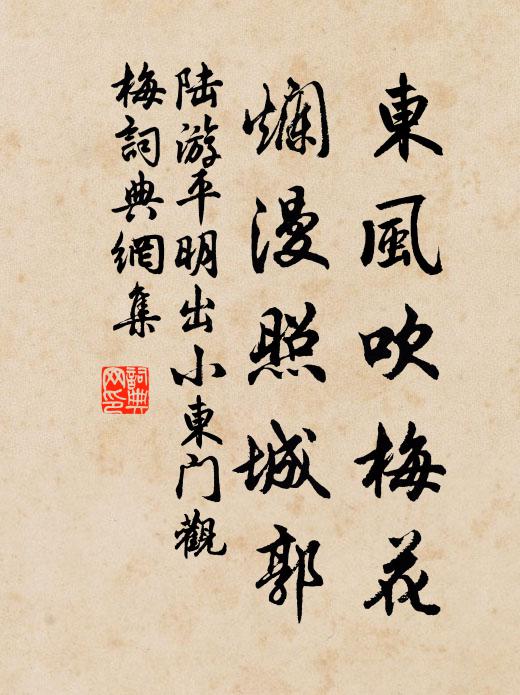 東風吹梅花
爛漫照城郭
陆游平明出小東门觀
梅詞典網集
詞典网印